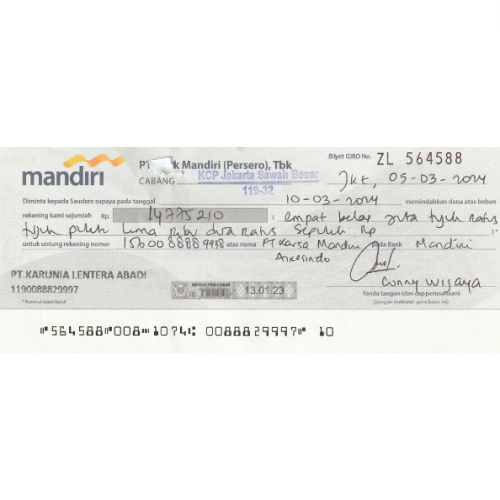 mandiri
PT Bank Mandiri (Persero), Tbk
CABANG KCP Jakarta Sawah Besar
119-32
Bilyet GIRO No. ZL 564588
Jkt, 05-03-2024
Diminta kepada Saudara supaya pada tanggal 10-03-2024 memindahkan dana atas beban
rekening kami sejumlah Rp. 14775210 empat belas juta tujuh ratus
tujuh puluh lima ribu dua ratus sepuluh Rp
untuk untung rekening nomor atas nama PT Karsa Mandiri pada Bank Mandiri
PT.KARUNIA LENTERA ABADI
1190088829997
13.01.23
Conny Wijaya
Tanda tangan (dan cap perusahaan)
⑈564588⑈008⑉1074⑆ 0088829997⑈ 10